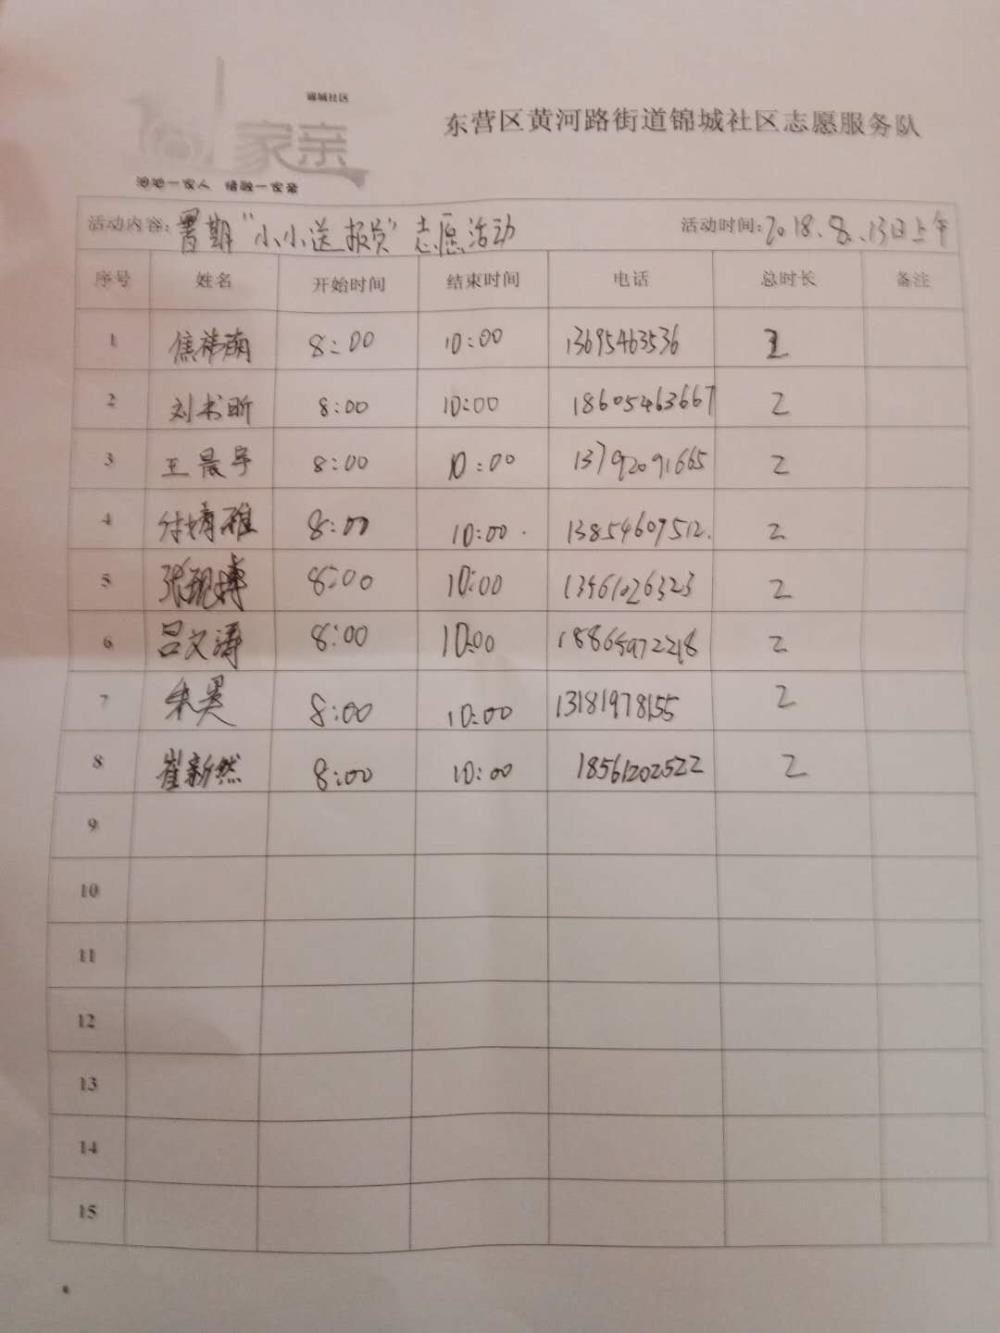 锦城社区
家亲
东营区黄河路街道锦城社区志愿服务队
一家人 情融一家亲
活动内容: 暑期“小小送报员”志愿活动 活动时间: 2018.8.13日上午
序号 姓名 开始时间 结束时间 电话 总时长 备注
1 焦祎萌 8:00 10:00 13695463536 2
2 刘书昕 8:00 10:00 18605463667 2
3 王晨宇 8:00 10:00 13792091665 2
4 付婧雅 8:00 10:00 13854607512. 2
5 张砚博 8:00 10:00 13461026323 2
6 吕文涛 8:00 10:00 18865972218 2
7 朱昊 8:00 10:00 13181978155 2
8 崔新然 8:00 10:00 18561202522 2
9
10
11
12
13
14
15